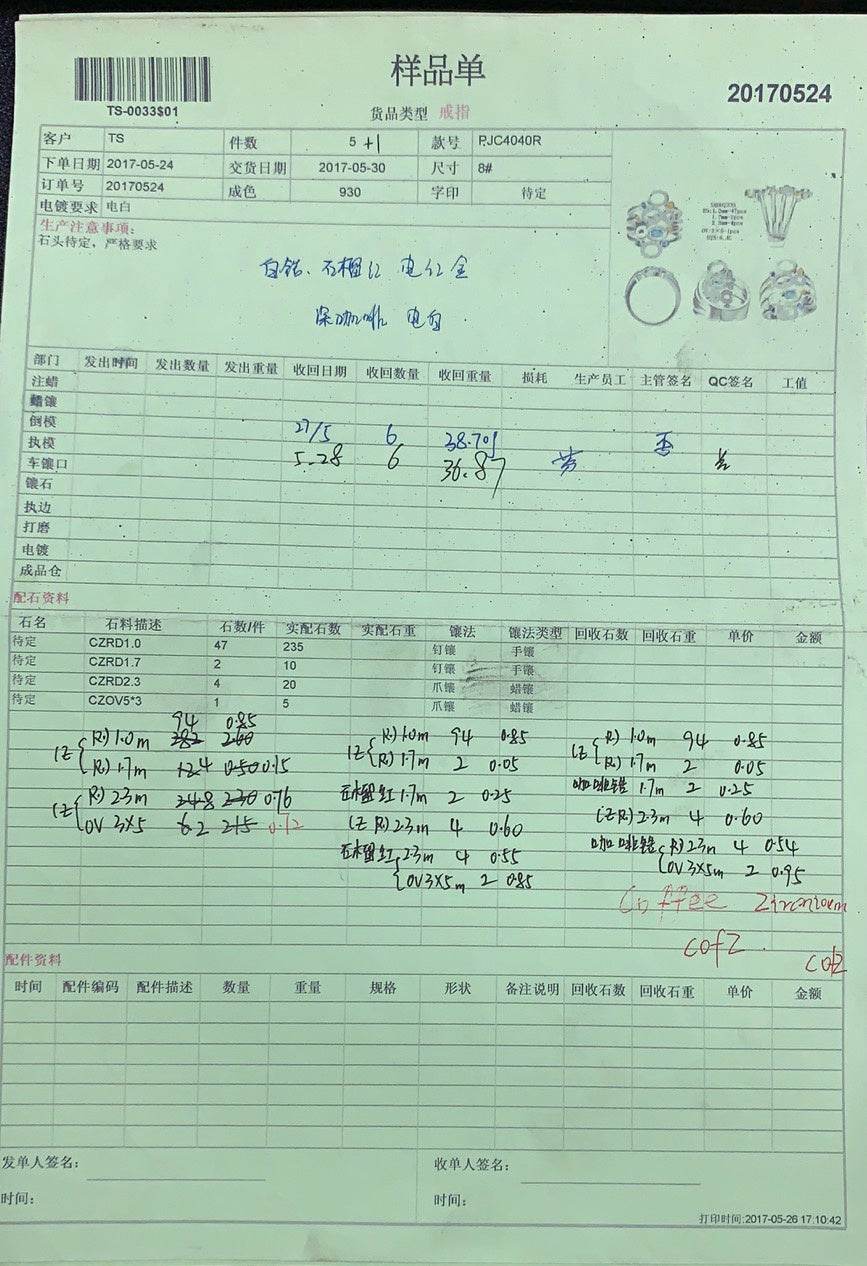 样品单
TS-0033$01
20170524
货品类型 戒指
客户 TS 件数 5 +1 款号 PJC4040R
下单日期 2017-05-24 交货日期 2017-05-30 尺寸 8#
订单号 20170524 成色 930 字印 待定
电镀要求 电白
生产注意事项:
石头待定，严格要求
白锆、石榴红 电红金
深咖啡 电白
部门 发出时间 发出数量 发出重量 收回日期 收回数量 收回重量 损耗 生产员工 主管签名 QC签名 工值
注蜡
蜡镶
倒模 27/5 6 38.70
执模 5.28 6 36.87
车镶口
镶石
执边
打磨
电镀
成品仓
配石资料
石名 石料描述 石数/件 实配石数 实配石重 镶法 镶法类型 回收石数 回收石重 单价 金额
待定 CZRD1.0 47 235 钉镶 手镶
待定 CZRD1.7 2 10 钉镶 手镶
待定 CZRD2.3 4 20 爪镶 蜡镶
待定 CZOV5*3 1 5 爪镶 蜡镶
94 0.85
(Z R) 1.0m 282 2.60 (Z R) 1.0m 94 0.85 (Z R) 1.0m 94 0.85
R) 1.7m 12 4 0.50 0.15 R) 1.7m 2 0.05 R) 1.7m 2 0.05
石榴红 1.7m 2 0.25 咖啡锆 1.7m 2 0.25
(Z R) 2.3m 24 8 2.30 0.76 (Z R) 2.3m 4 0.60 (Z R) 2.3m 4 0.60
OV 3X5 6 2 2.15 0.72 石榴红 2.3m 4 0.55 咖啡锆 R) 2.3m 4 0.54
OV 3X5m 2 0.85 OV 3X5m 2 0.95
Coffee Zirconium
cofZ
cofZ
配件资料
时间 配件编码 配件描述 数量 重量 规格 形状 备注说明 回收石数 回收石重 单价 金额
发单人签名: 收单人签名:
时间: 时间:
打印时间:2017-05-26 17:10:42